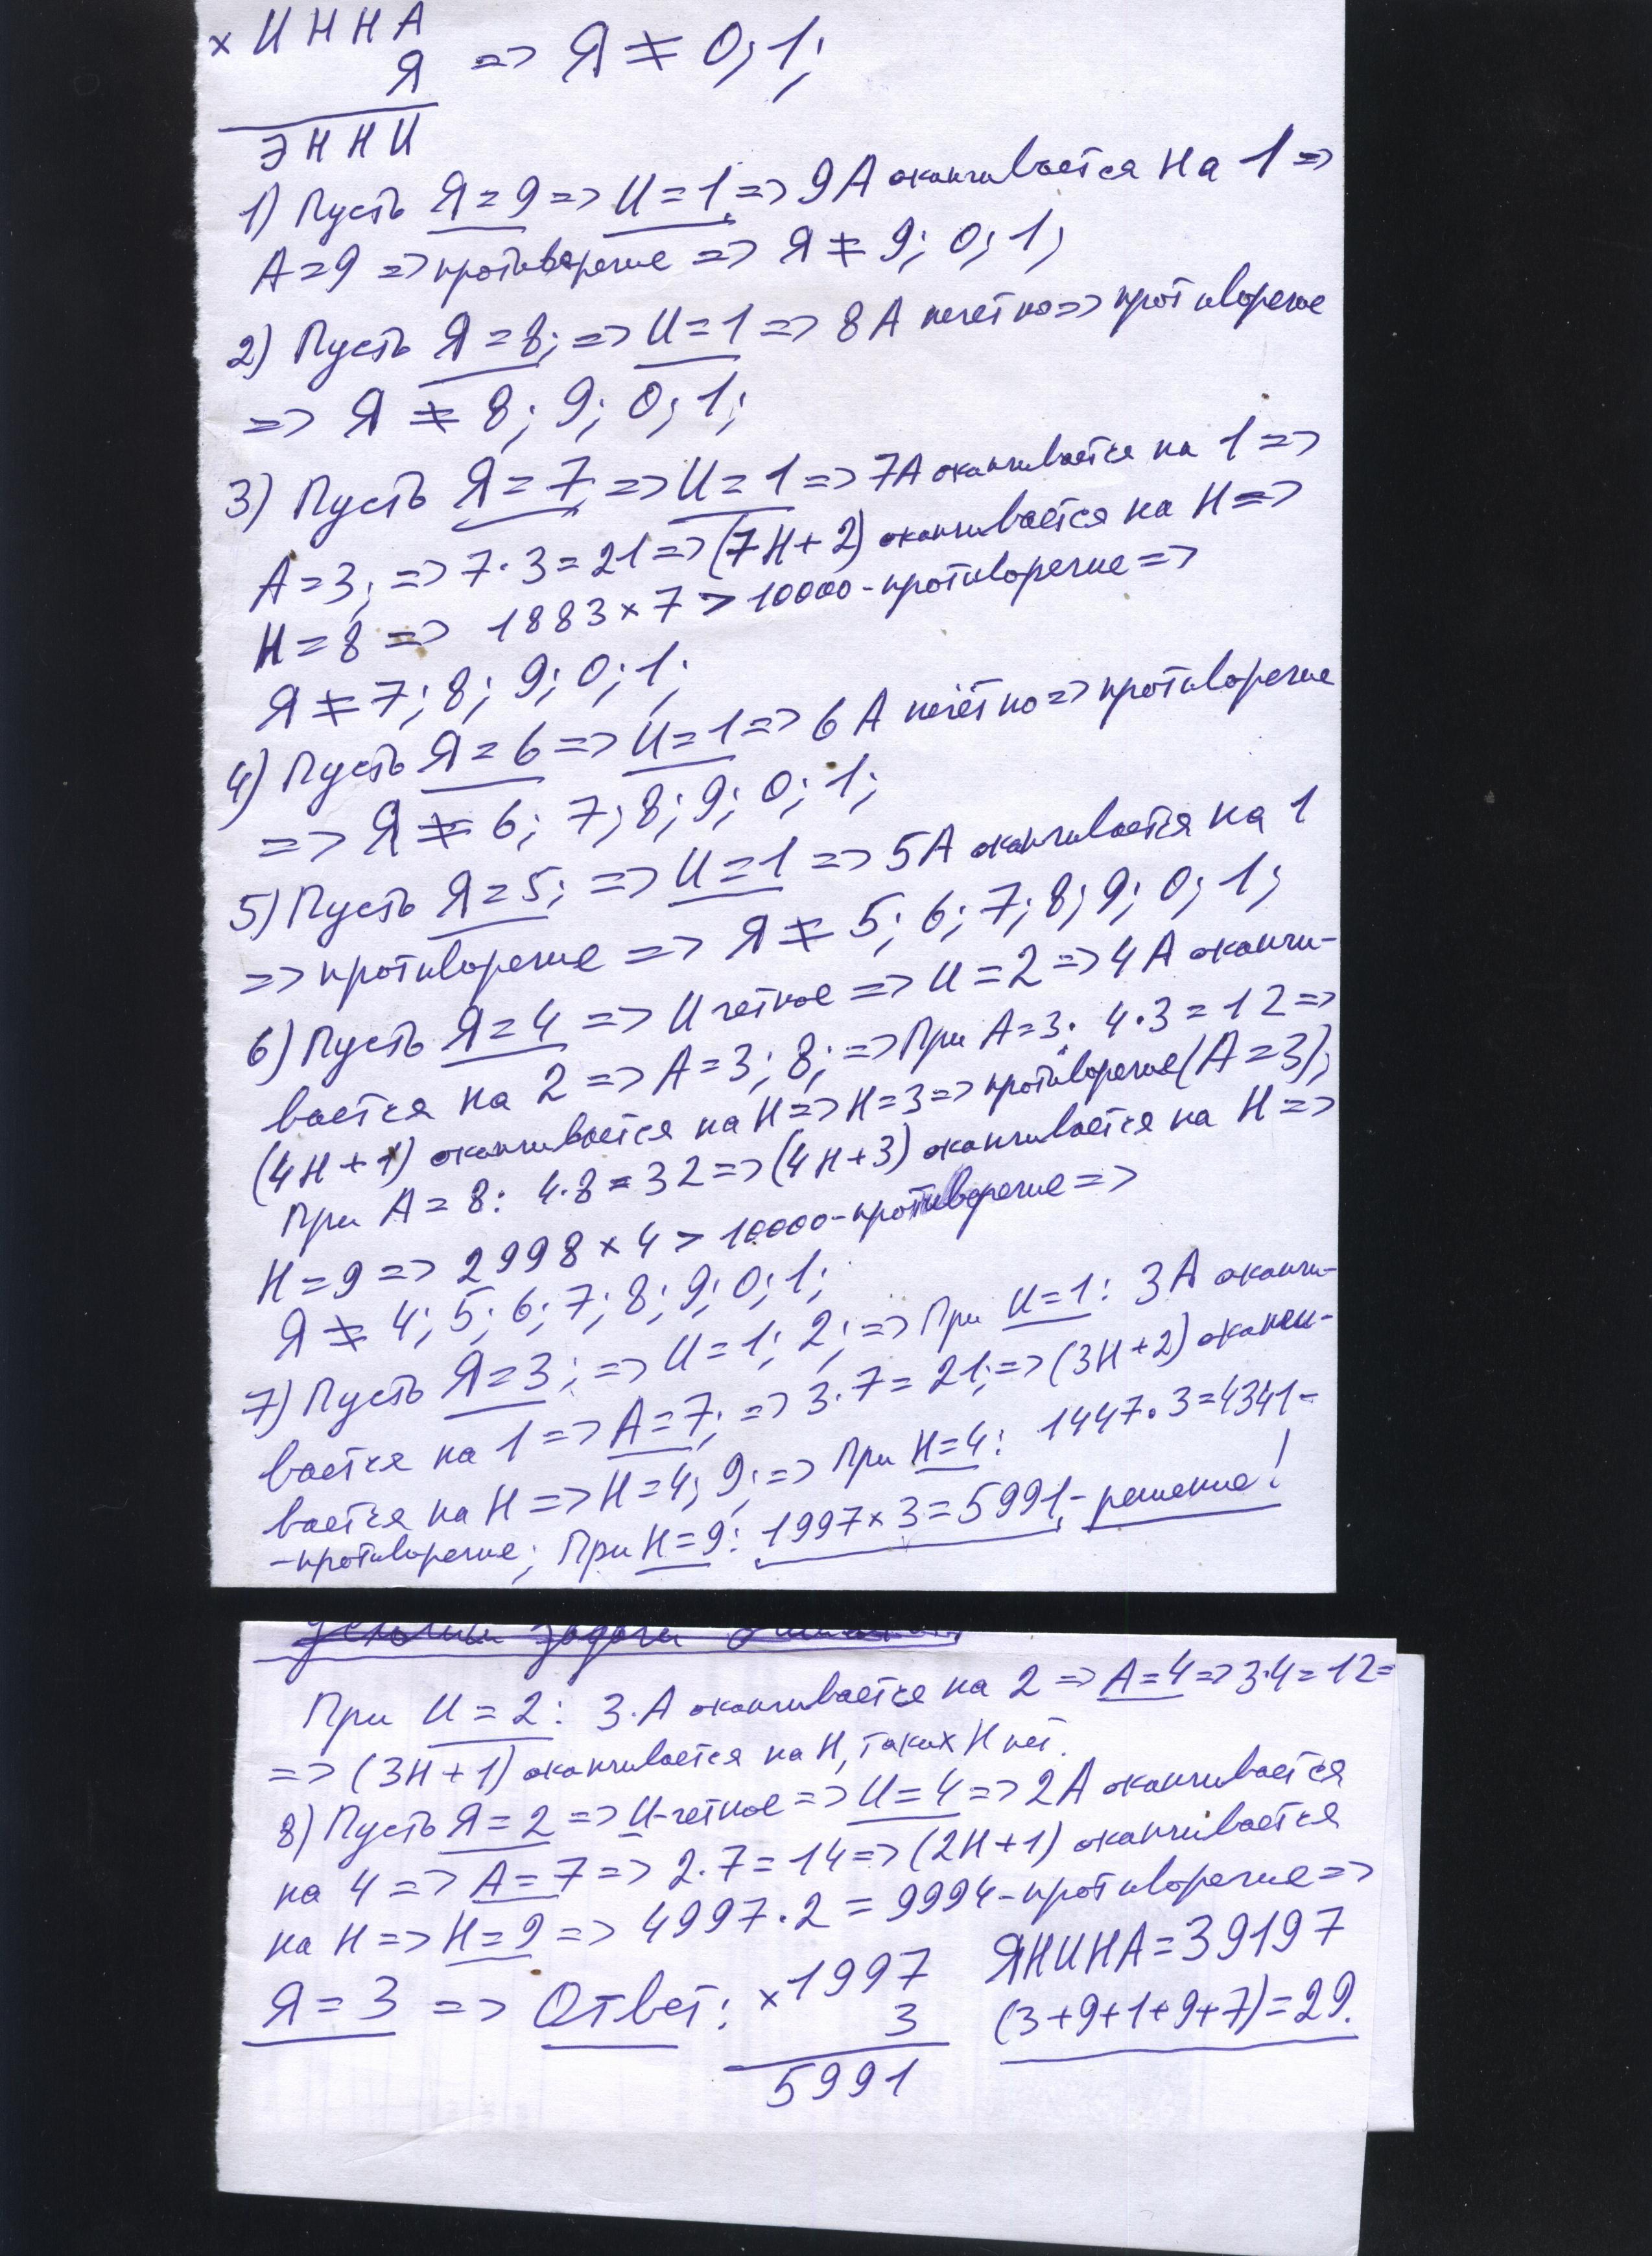 × И Н Н А
Я => Я ≠ 0; 1;
Э Н Н И
1) Пусть Я = 9 => И = 1; => 9А оканчивается на 1 =>
А = 9 => противоречие => Я ≠ 9; 0; 1;
2) Пусть Я = 8; => И = 1 => 8А нечётно => противоречие
=> Я ≠ 8; 9; 0; 1;
3) Пусть Я = 7; => И = 1 => 7А оканчивается на 1 =>
А = 3; => 7·3 = 21 => (7Н + 2) оканчивается на Н =>
Н = 8 => 1883 × 7 > 10000 - противоречие =>
Я ≠ 7; 8; 9; 0; 1;
4) Пусть Я = 6 => И = 1 => 6А нечётно => противоречие
=> Я ≠ 6; 7; 8; 9; 0; 1;
5) Пусть Я = 5; => И = 1 => 5А оканчивается на 1
=> противоречие => Я ≠ 5; 6; 7; 8; 9; 0; 1;
6) Пусть Я = 4 => И четное => И = 2 => 4А оканчи-
вается на 2 => А = 3; 8; => При А = 3: 4·3 = 12 =>
(4Н + 1) оканчивается на Н => Н = 3 => противоречие (А = 3);
При А = 8: 4·8 = 32 => (4Н + 3) оканчивается на Н =>
Н = 9 => 2998 × 4 > 10000 - противоречие =>
Я ≠ 4; 5; 6; 7; 8; 9; 0; 1;
7) Пусть Я = 3; => И = 1; 2; => При И = 1: 3А оканчи-
вается на 1 => А = 7; => 3·7 = 21; => (3Н + 2) оканчи-
вается на Н => Н = 4; 9; => При Н = 4: 1447·3 = 4341 -
- противоречие; При Н = 9: 1997 × 3 = 5991 - решение!
При И = 2: 3·А оканчивается на 2 => А = 4 => 3·4 = 12 =
=> (3Н + 1) оканчивается на Н, таких Н нет.
8) Пусть Я = 2 => И - четное => И = 4 => 2А оканчивается
на 4 => А = 7 => 2·7 = 14 => (2Н + 1) оканчивается
на Н => Н = 9 => 4997·2 = 9994 - противоречие =>
Я = 3 => Ответ: × 1997 ЯНИНА = 39197
3 (3 + 9 + 1 + 9 + 7) = 29.
5991